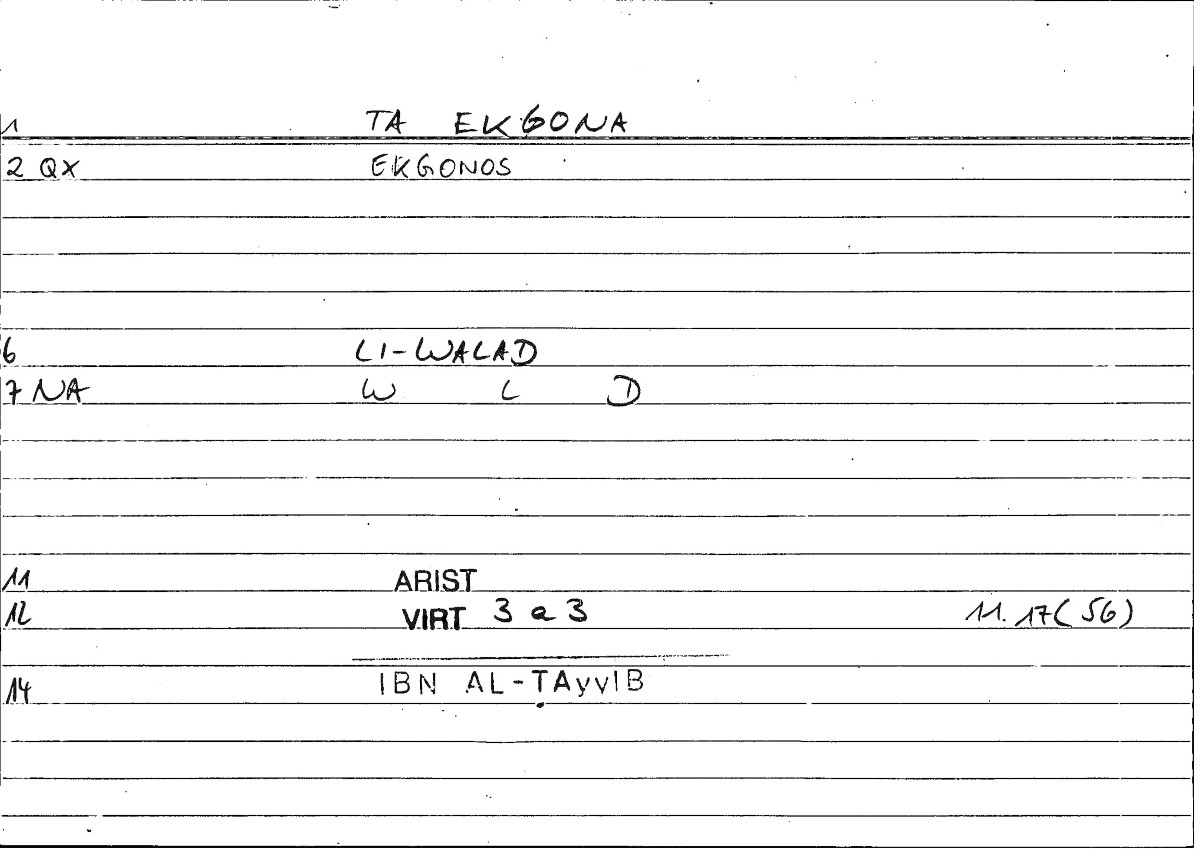 1 TA EKGONA
2 QX EKGONOS
6 LI-WALAD
7 NA W L D
11 ARIST
12 VIRT 3 a 3 11.17(56)
14 IBN AL-ṬAyyIB